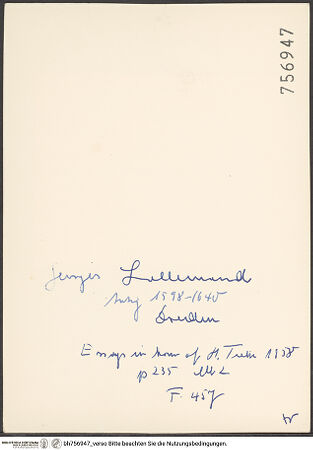 756947
Georges Lallemand
tätig 1598-1640
Dresden
Essays in hon of H. Tietze 1958
p 235 Abb 2
F. 457
bh756947_verso Bitte beachten Sie die Nutzungsbedingungen.